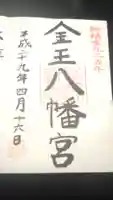 金王八幡宮
平成二十九年四月十六日